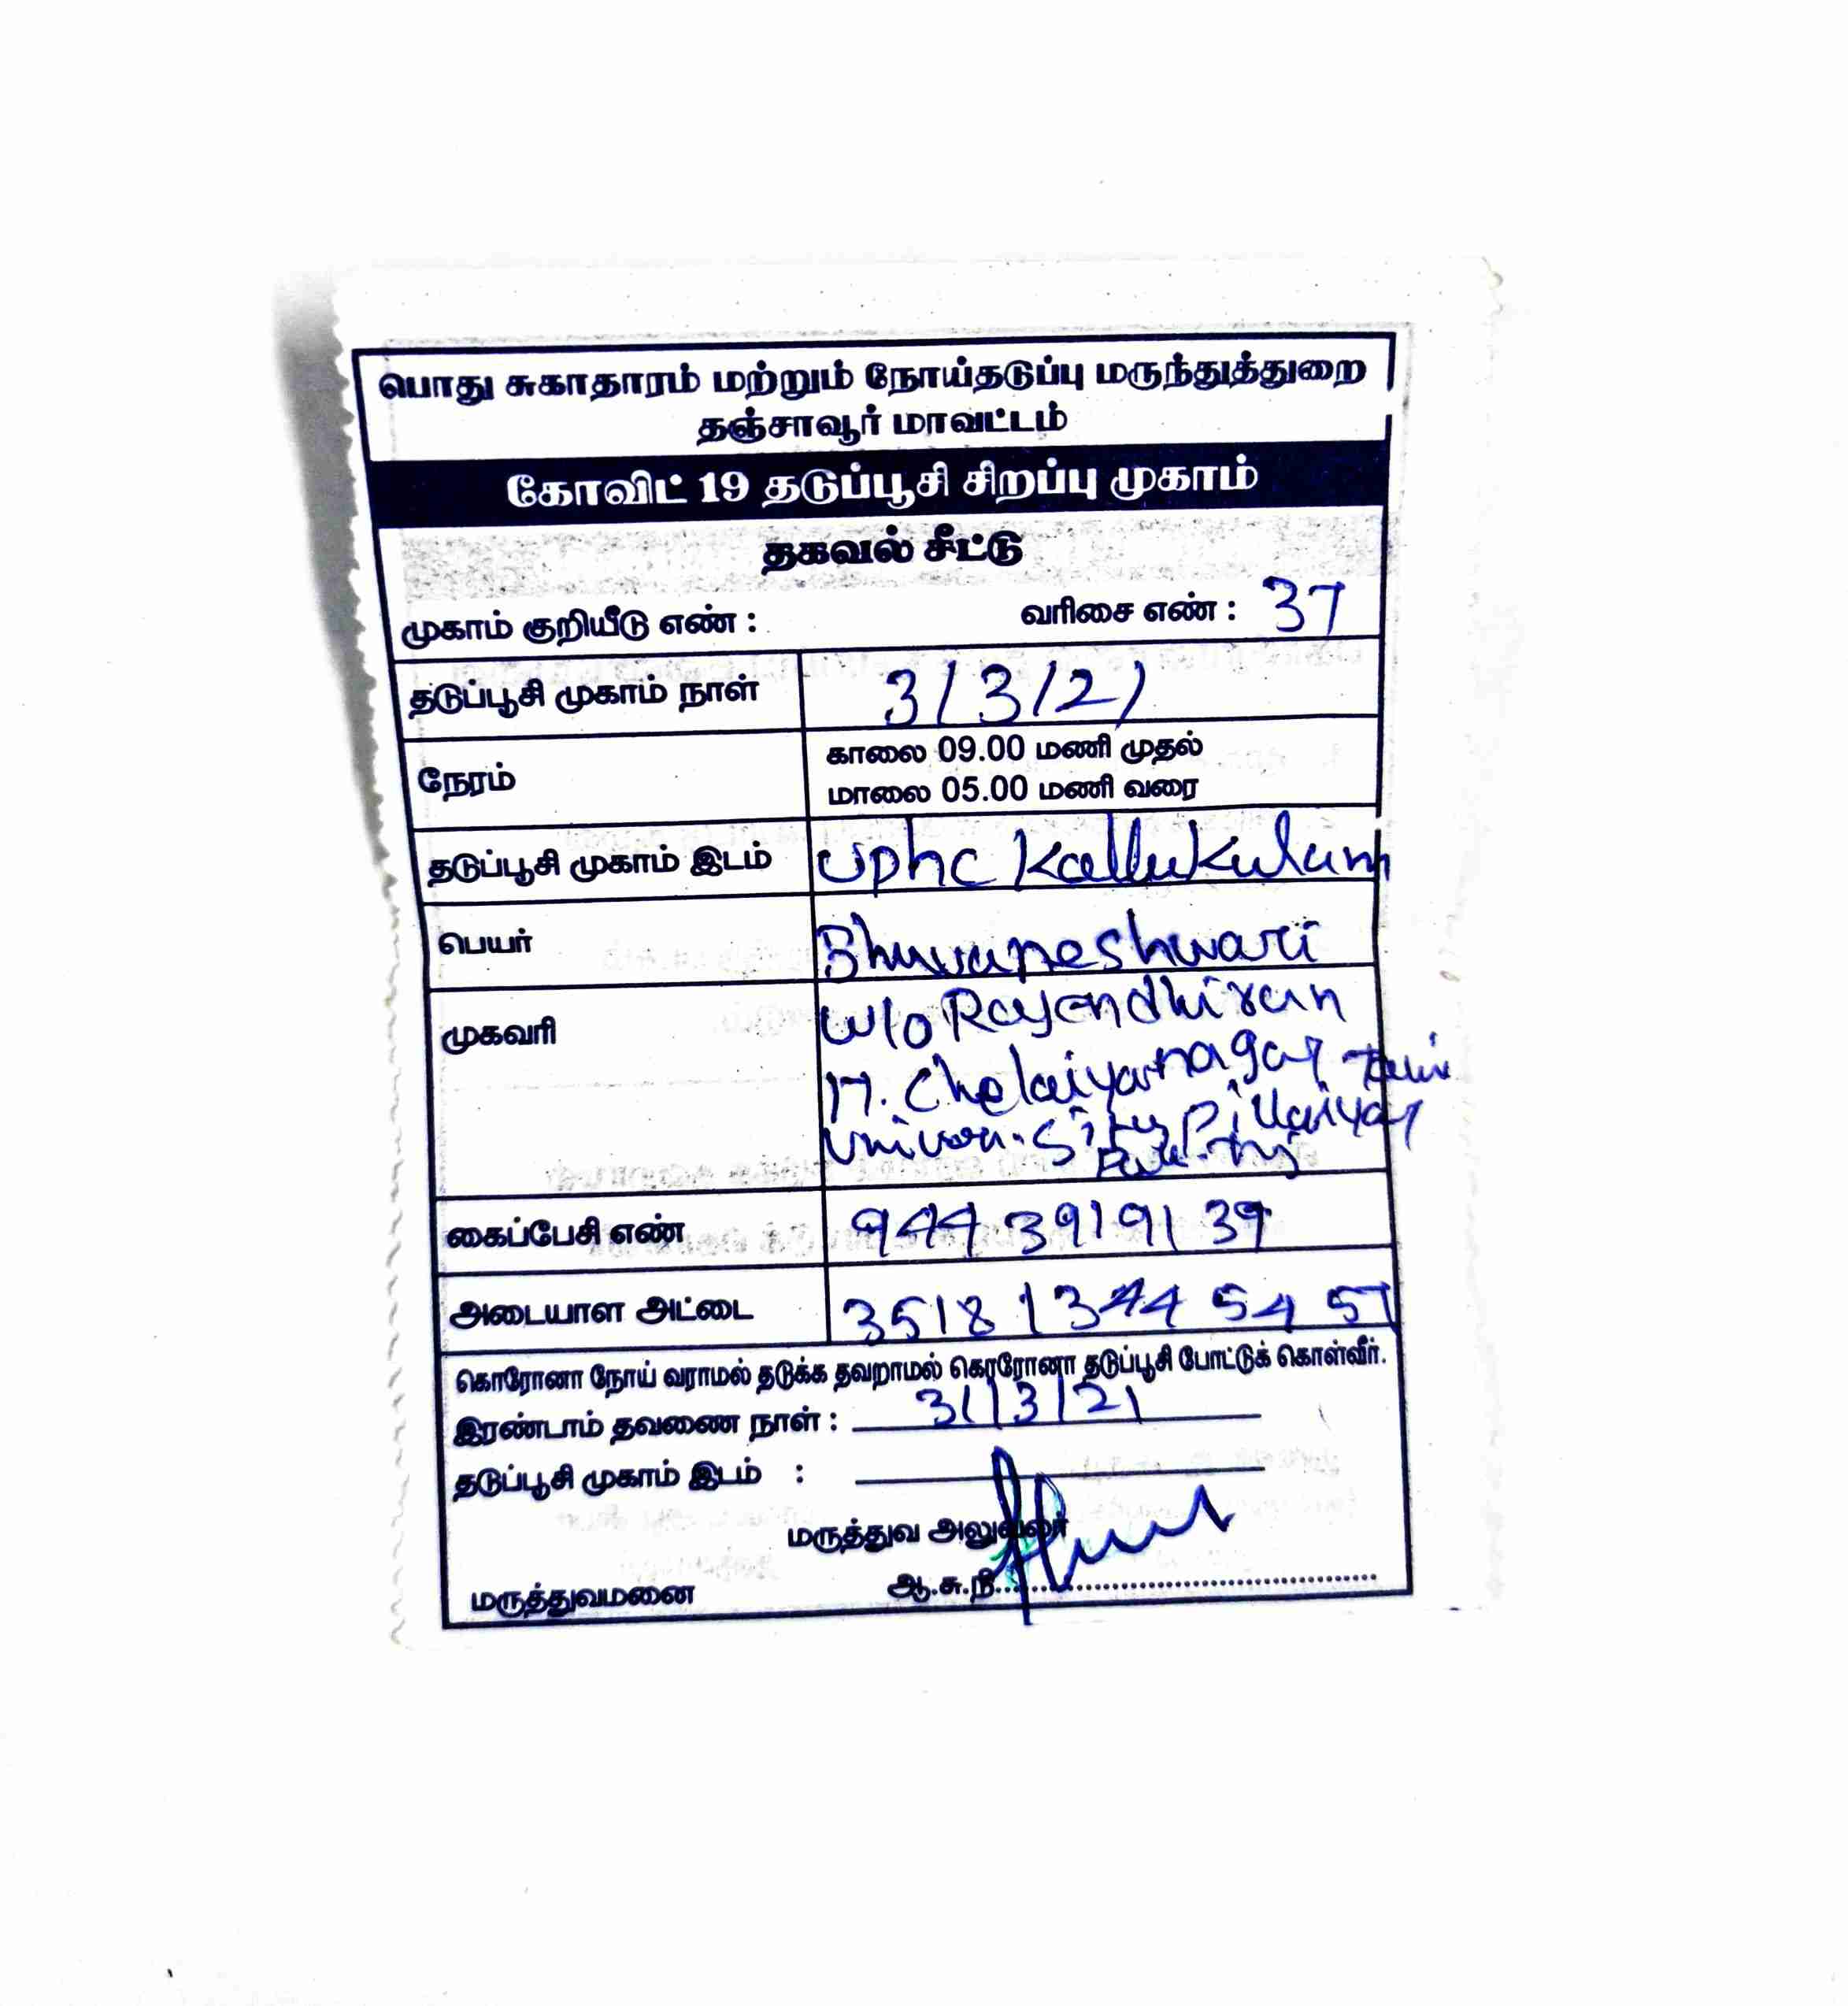 பொது சுகாதாரம் மற்றும் நோய்தடுப்பு மருந்துத்துறை
தஞ்சாவூர் மாவட்டம்
கோவிட் 19 தடுப்பூசி சிறப்பு முகாம்
தகவல் சீட்டு
முகாம் குறியீடு எண் : வரிசை எண் : 37
தடுப்பூசி முகாம் நாள் 3/3/21
நேரம் காலை 09.00 மணி முதல்
மாலை 05.00 மணி வரை
தடுப்பூசி முகாம் இடம் uphc Kallukulam
பெயர் Bhuvaneshwari
முகவரி W/o Rajendhiran
17. Chelaiyanagar
Pillaiyar
கைப்பேசி எண்944 39191 39
அடையாள அட்டை 3518 1344 5457
கொரோனா நோய் வராமல் தடுக்க தவறாமல் கொரோனா தடுப்பூசி போட்டுக் கொள்வீர்.
இரண்டாம் தவணை நாள் : 31/3/21
தடுப்பூசி முகாம் இடம் :
மருத்துவ அலுவலர்
மருத்துவமனை ஆ.சு.நி.